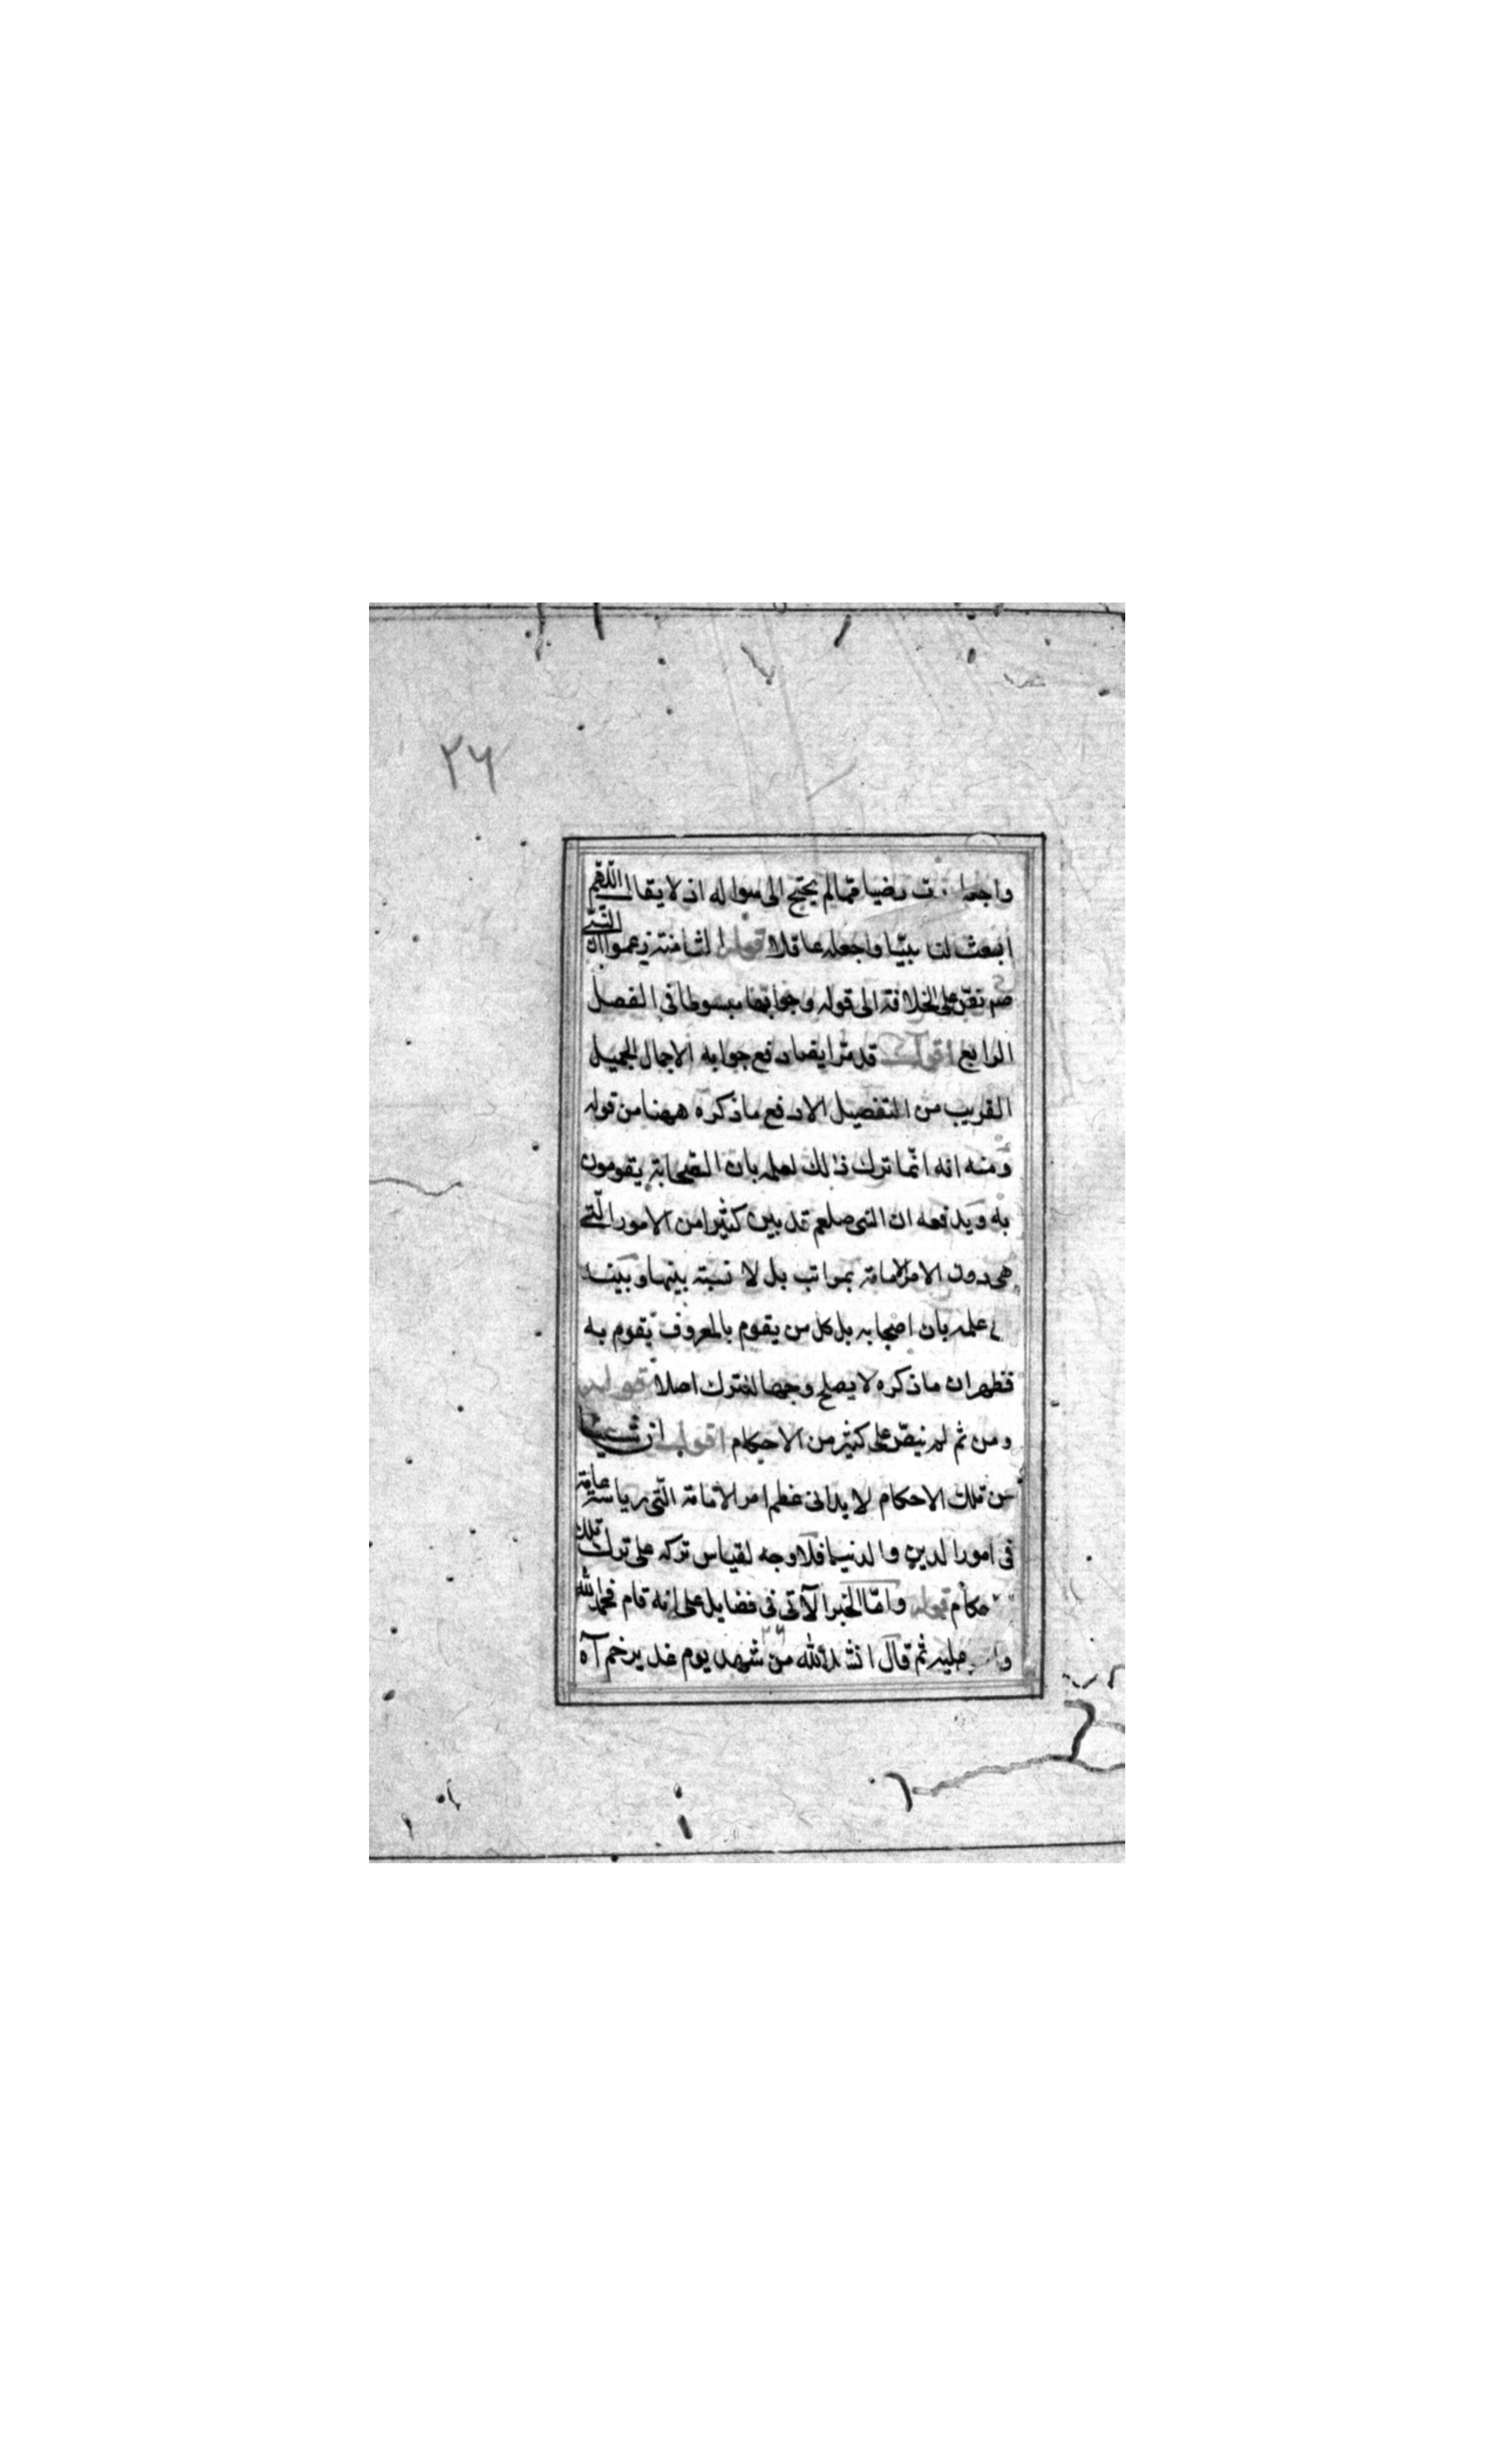 ٢٦
رضيا فمما لم يحتج الى سواله اذ لا يقال اللهم
ابعث لنا نبيّا واجعله عاقلا قوله الثامنة زعموا ان النبى
صم نصّ على الخلافة الى قوله وجوابها مبسوطا فى الفصل
الرابع اقول قد مرّ ايضا دفع جوابه الاجمال الجميل
القريب من التفصيل الا دفع ما ذكره ههنا من قوله
ومنه انه انّما ترك ذلك لعلمه بان الصّحابة يقومون
به ويدفعه ان النبى صلعم قد بين كثيرا من الامور الّتى
هى دون الامر الامامة بمراتب بل لا نسبة بينها وبينه
علمه بان اصحابه بل كل من يقوم بالمعروف يقوم به
فظهر ان ما ذكره لا يصلح وجها للترك اصلا قوله
ومن ثم لم ينصّ على كثير من الاحكام اقول ان شيئا
من تلك الاحكام لا يدانى عظم امر الامامة الّتى رياسة عامّة
فى امور الدين والدنيا فلا وجه لقياس تركه على ترك تلك
حكام قوله وامّا الخبر الآتى فى فضايل على انه قام فحمد الله
عليه ثم قال انشد الله من شهد يوم غدير خم آه